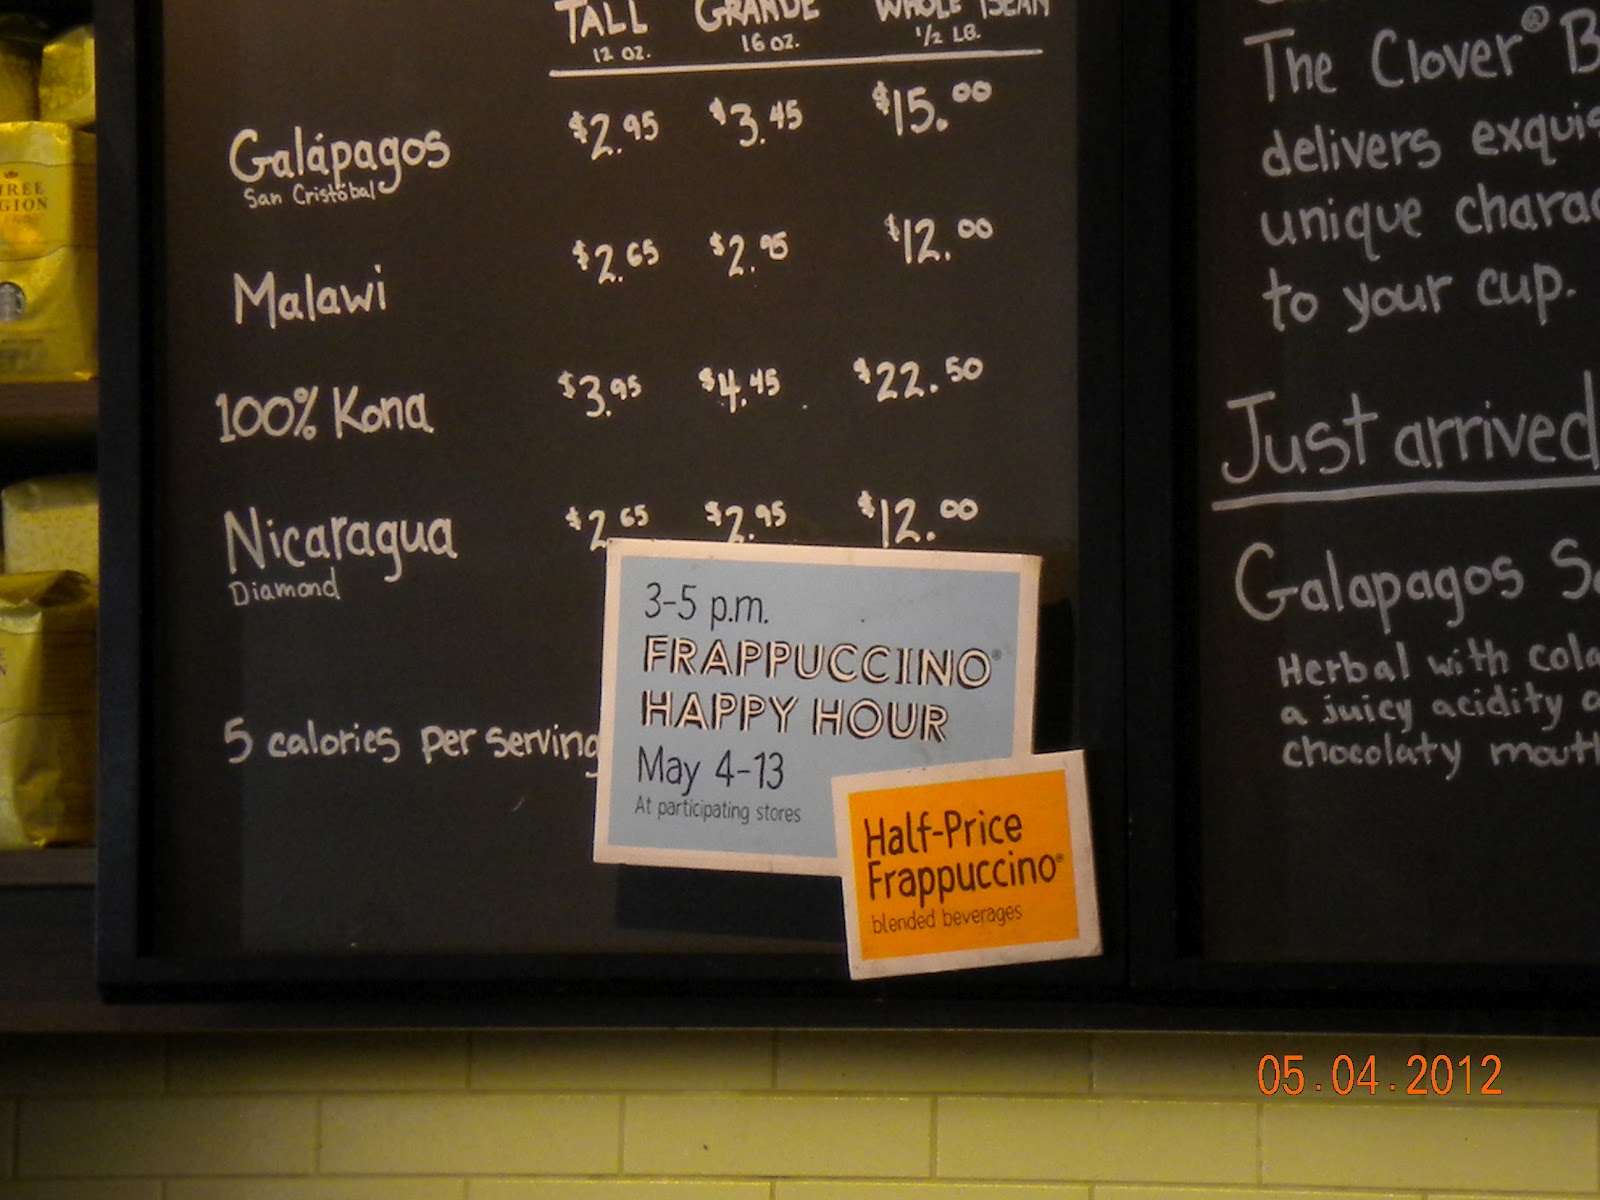 TALL GRANDE WHOLE BEAN
12 OZ. 16 OZ. 1/2 LB.
Galápagos $2.95 $3.45 $15.00
San Cristóbal
Malawi $2.65 $2.95 $12.00
100% Kona $3.95 $4.45 $22.50
Nicaragua $2.65 $2.95 $12.00
Diamond
5 calories per serving
3-5 p.m.
FRAPPUCCINO®
HAPPY HOUR
May 4-13
At participating stores
Half-Price
Frappuccino®
blended beverages
The Clover®
delivers
unique
to your cup.
Just arrived
Galapagos
Herbal with
a juicy acidity
chocolaty
05.04.2012